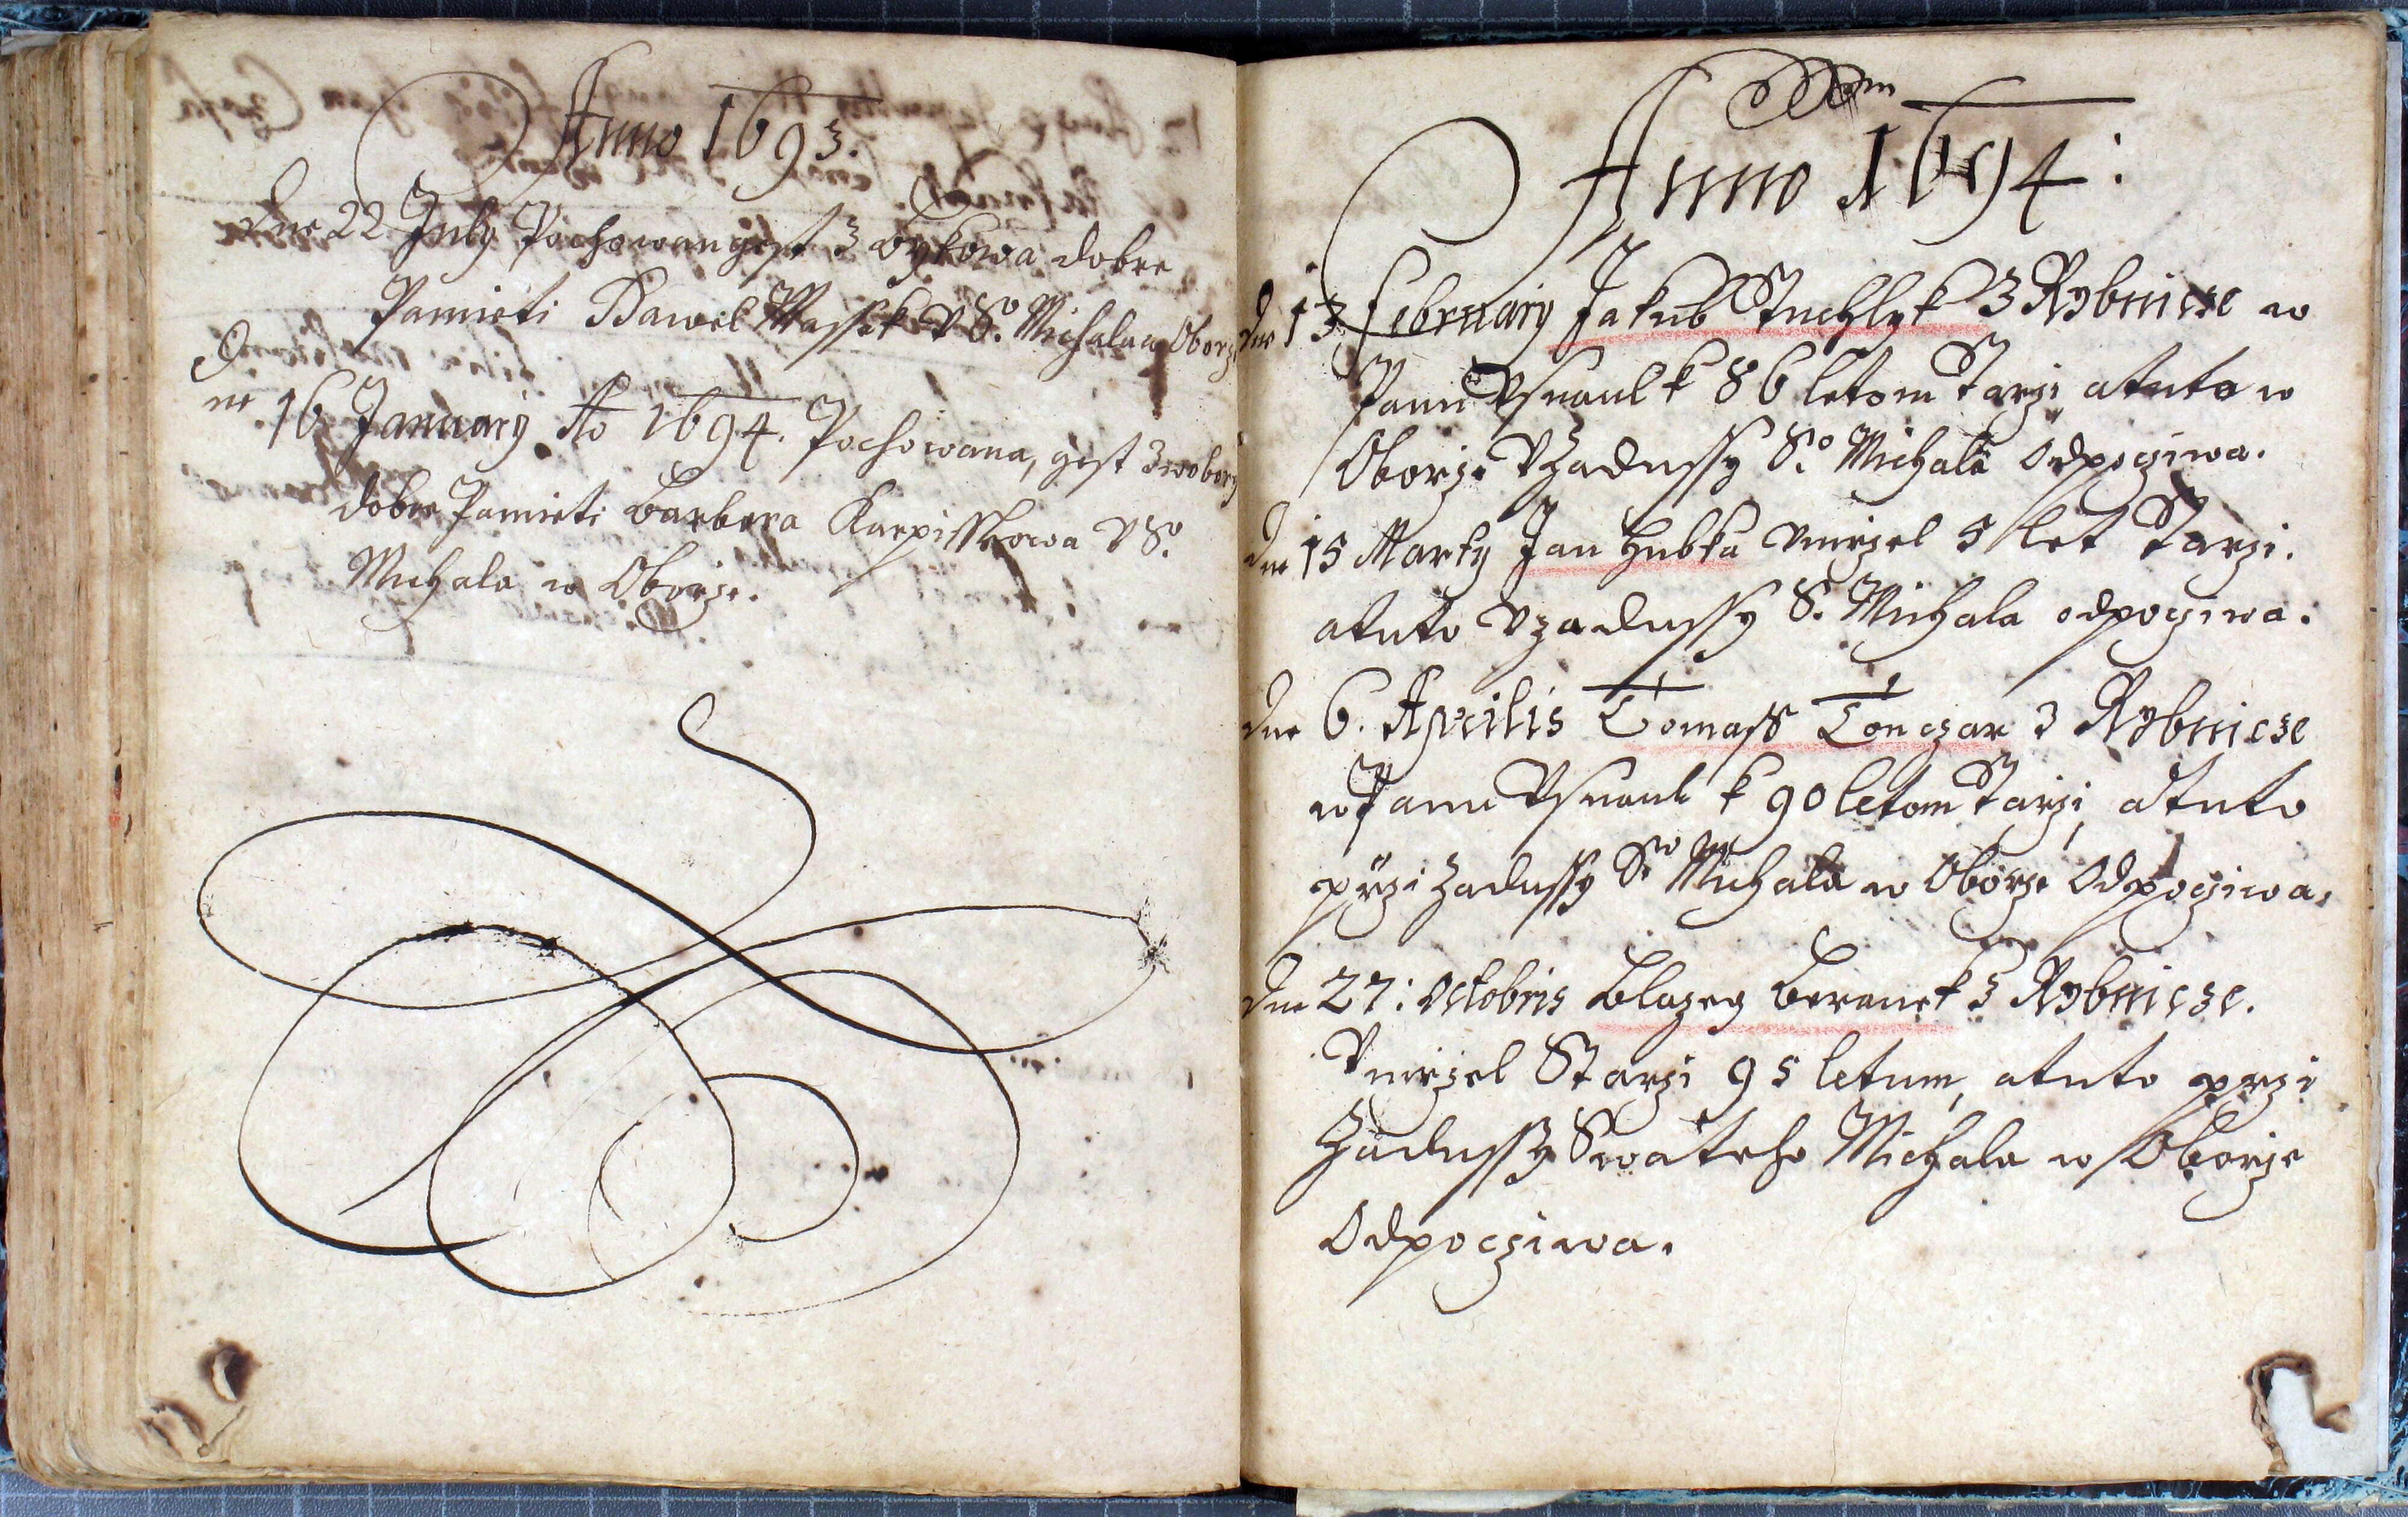 Anno 1693.
Dne 22 July Pochowan gest z Bykowa dobre
Pamieti Pawel Massek v So. Michala w Oborzi
Dne 16 January Ao 1694. Pochowana, gest z wobory
dobre Pamieti Barbora Karpisskowa v So.
Michala w Oborze.
Anno 1694:
Dne 13 February Jakub Suchlyk z Rybnicze w
Panu Vsnaul k 86 letom Starzi a tuto w
Oborze v Zadussy So. Michala Odpocziwa.
Dne 15 Marty Jan Hubka vmrzel 5 let Starzi.
a tuto v zadussy S. Michala odpocziwa.
Dne 6. Aprilis Tomass Lonczar z Rybnicze
w Panu Vsnaul k 90 letom Starzi, a tuto
przi Zadussy So Michala w Oborze Odpocziwa,
Dne 27: Octobris Blazeg Beranek z Rybnicze.
Vmrzel Starzi 95 letum, a tuto przi
Zadussy Swateho Michala w Oborze
Odpocziwa.